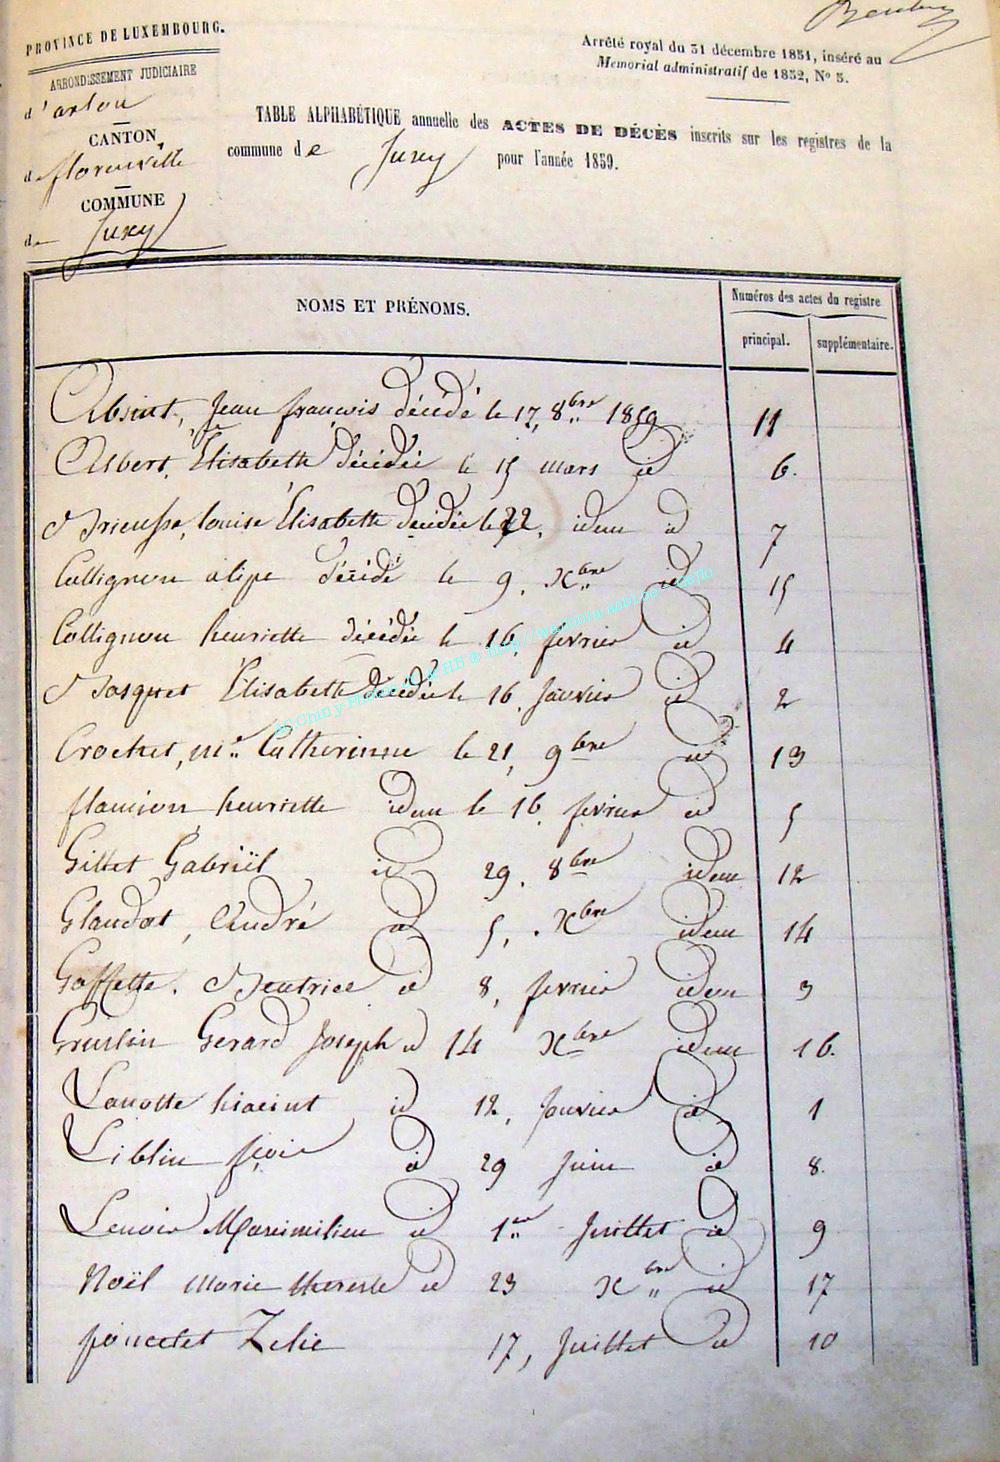 PROVINCE DE LUXEMBOURG.
ARRONDISSEMENT JUDICIAIRE
d'arlon
CANTON
de florenville
COMMUNE
de Juxey
Arrêté royal du 31 décembre 1851, inséré au
Memorial administratif de 1852, N° 5.
TABLE ALPHABÉTIQUE annuelle des ACTES DE DÉCÈS inscrits sur les registres de la
commune de Juxey pour l'année 1859.
NOMS ET PRÉNOMS.
Numéros des actes du registre
principal. supplémentaire.
Absint, Jean françois décédé le 17, 8bre 1859 11
Albert, Elisabeth décédée le 15 mars id 6.
louise Elisabeth décédée le 22, idem id 7
Collignon alipe décédé le 9, xbre id 15
Collignon henriette décédée le 16, fevrier id 4
Elisabeth décédée le 16, Janvier id 2
Crochet, me Catherinne le 21, 9bre id 13
flamion henriette idem le 16, fevrier id 5
Gillet Gabriël id 29, 8bre idem 12
Glaudot, André id 5, xbre idem 14
Goffette. Beatrice id 8, fevrier idem 3
Gerard Joseph id 14 xbre idem 16.
Lanotte hiacint id 12, Janvier id 1
Liblin id 29 Juin id 8.
Lenoir Maximilien id 1er Juillet id 9
Noël Marie therese id 23 xbre id 17
poncelet Zelie 17, Juillet id 10